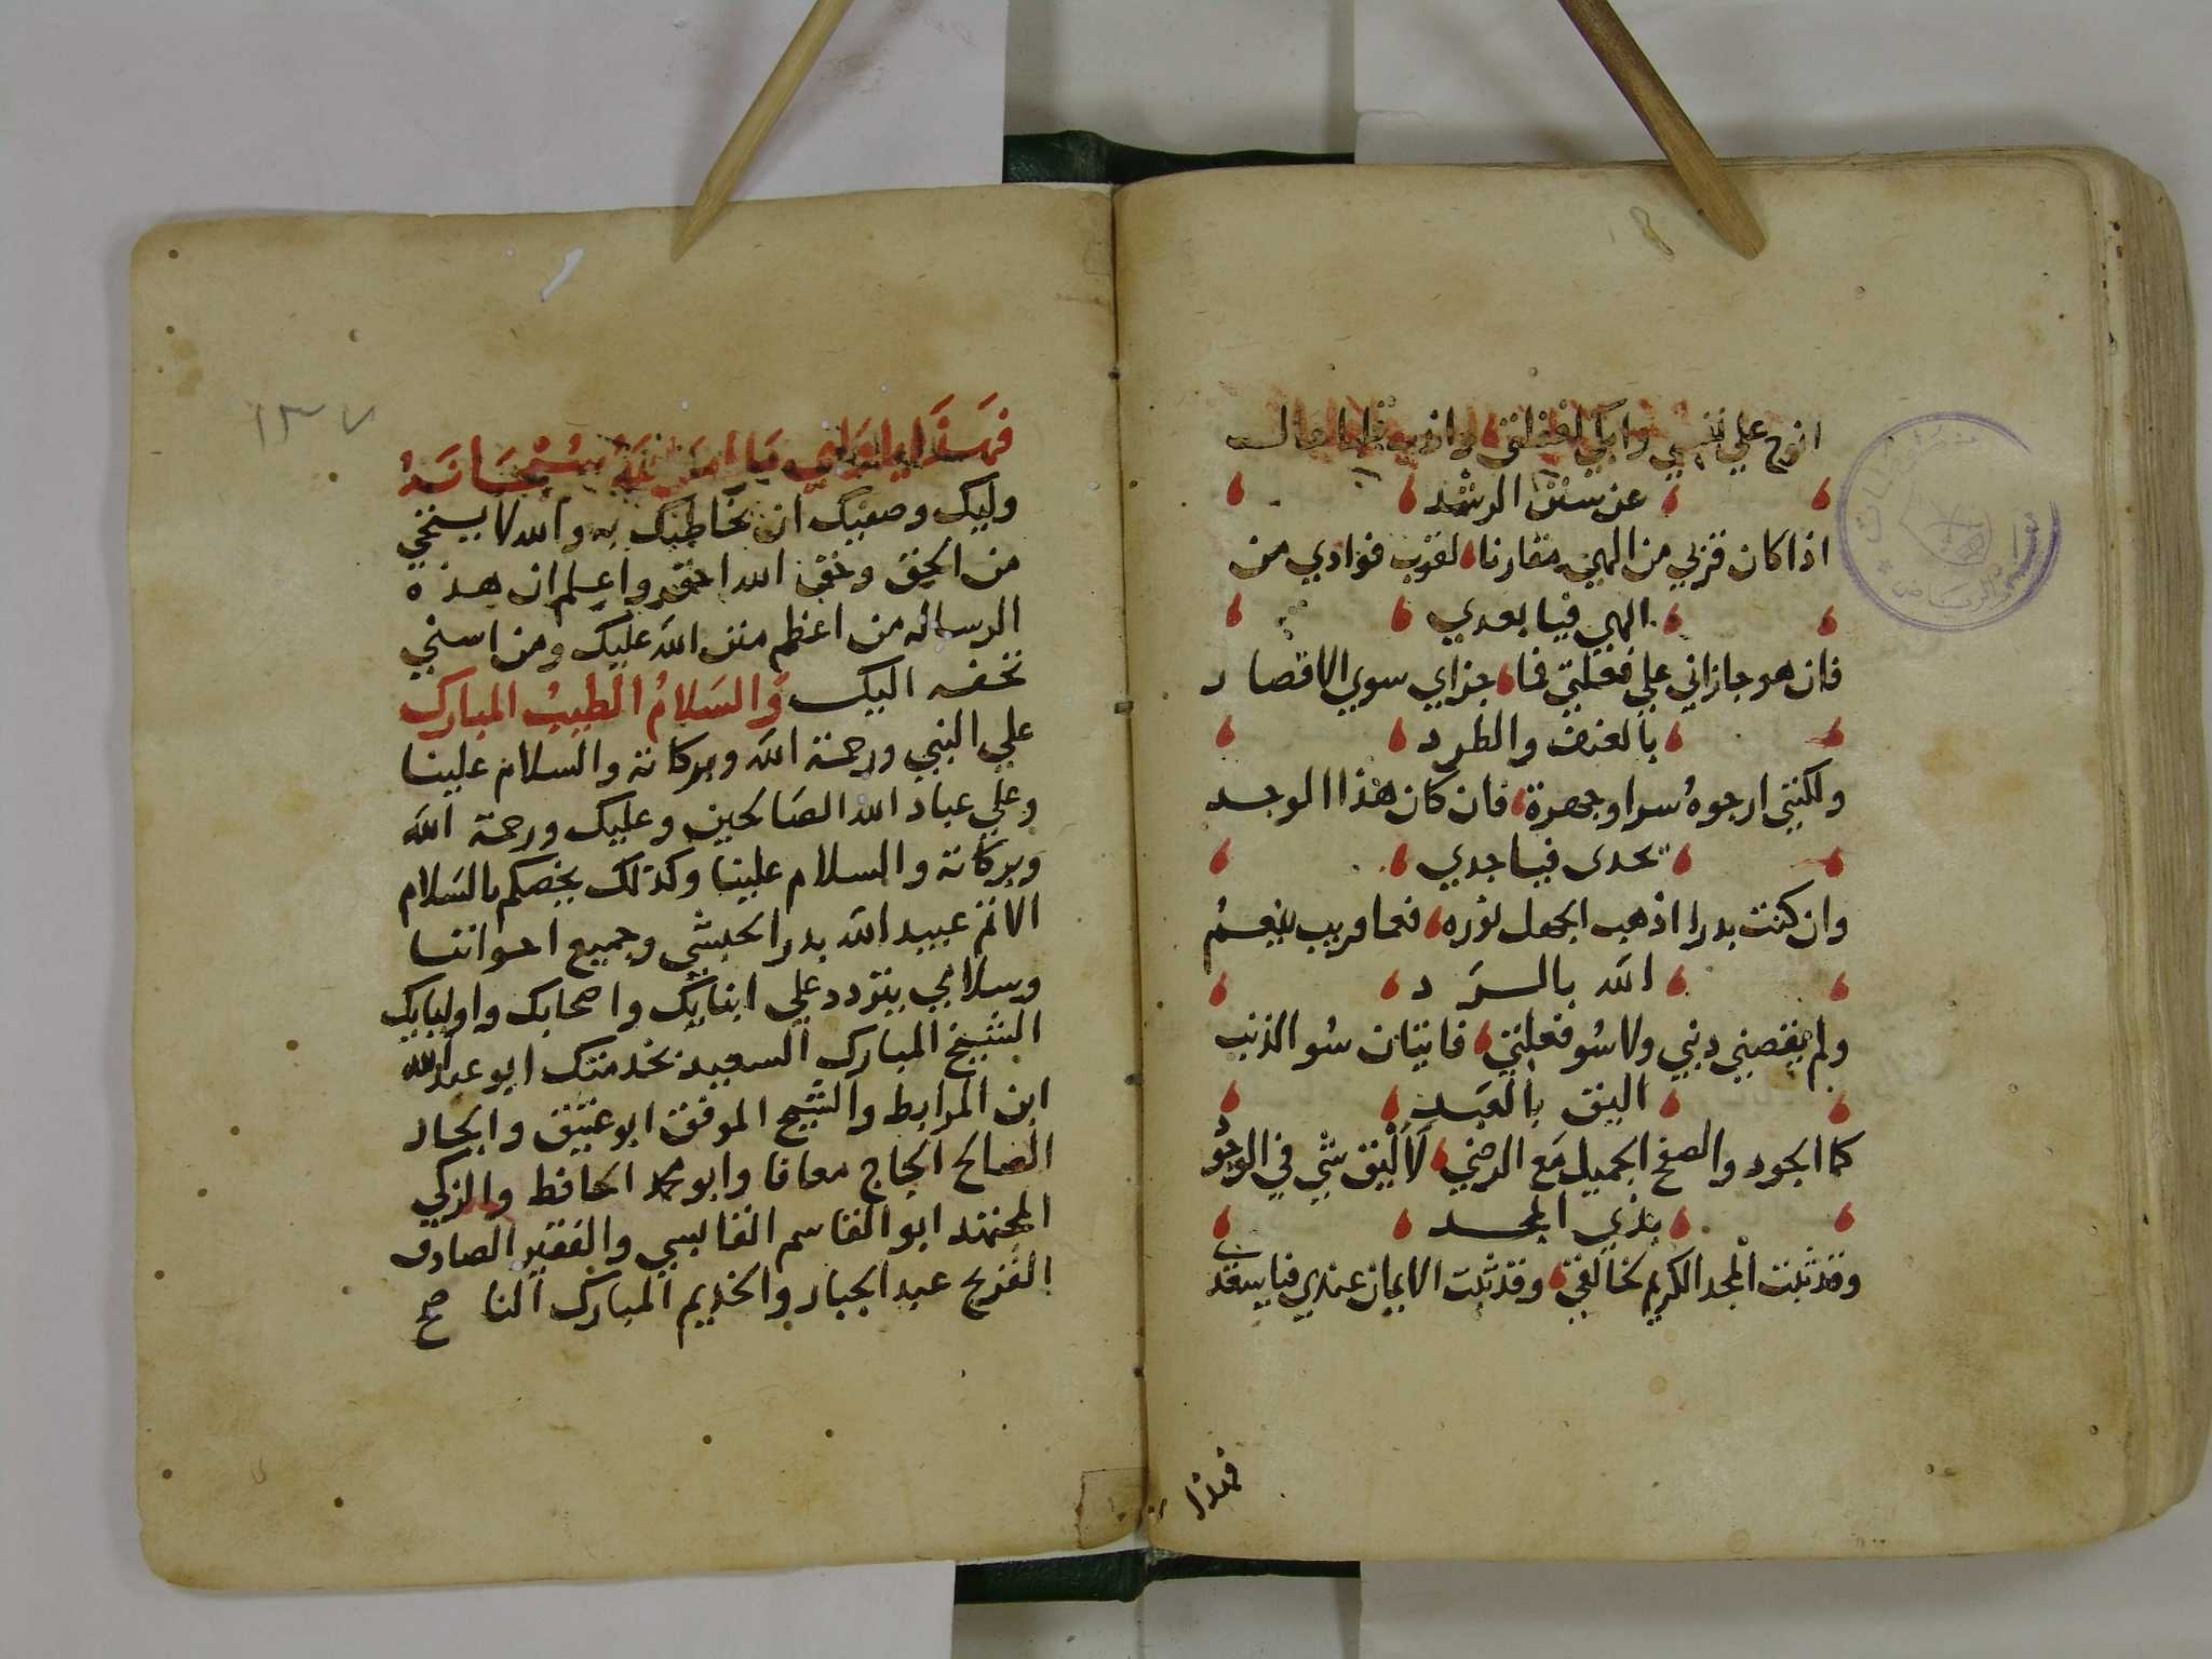 انوح علي نفسي وابكي لغفلتي واذري ظما مال
عن سنن الرشد
اذا كان قربي من الهي مقارنا لقرب فوادي من
الهي فيا بعدي
فان هو جازاني علي فعلتي فما جزاي سوي الاقصا د
بالعنف والطرد
ولكنني ارجوه سرا وجهرة فان كان هذا الوجد
يجدي فيا جدي
وان كنت بدرا اذهب الجهل نوره فعما قريب ينعم
الله بالسرد
ولم يقصني دنبي ولا سو فعلتي فاتيان سو الذنب
اليق بالعبد
كما الجود والصفح الجميل مع الرضي لاليق شي في الوجود
بذي المجد
وقد نلت المجد الكريم لخالقي وقد نلت الايمان عندي فيا سعدي
فهذا
١٣٧
فهذا يا وليي ما امر الله سبحانه
وليك وصفيك ان يخاطبك به والله لا يستحي
من الحق وحق الله احق واعلم ان هذه
الرساله من اعظم منن الله عليك ومن اسني
تحفه اليك والسلام الطيب المبارك
علي النبي ورحمة الله وبركاته والسلام علينا
وعلي عباد الله الصالحين وعليك ورحمة الله
وبركاته والسلام علينا وكذلك يخصكم بالسلام
الاتم عبيد الله بدر الحبشي وجميع اخواننا
وسلامي يتردد علي ابنايك واصحابك واوليايك
الشيخ المبارك السعيد بخدمتك ابو عبد الله
ابن المرابط والشيخ الموفق ابو عتيق والجار
الصالح الحاج معافا وابو محمد الحافظ والزكي
المجتهد ابو القاسم القابسي والفقير الصادق
الفرج عبد الجبار والخديم المبارك النا صح